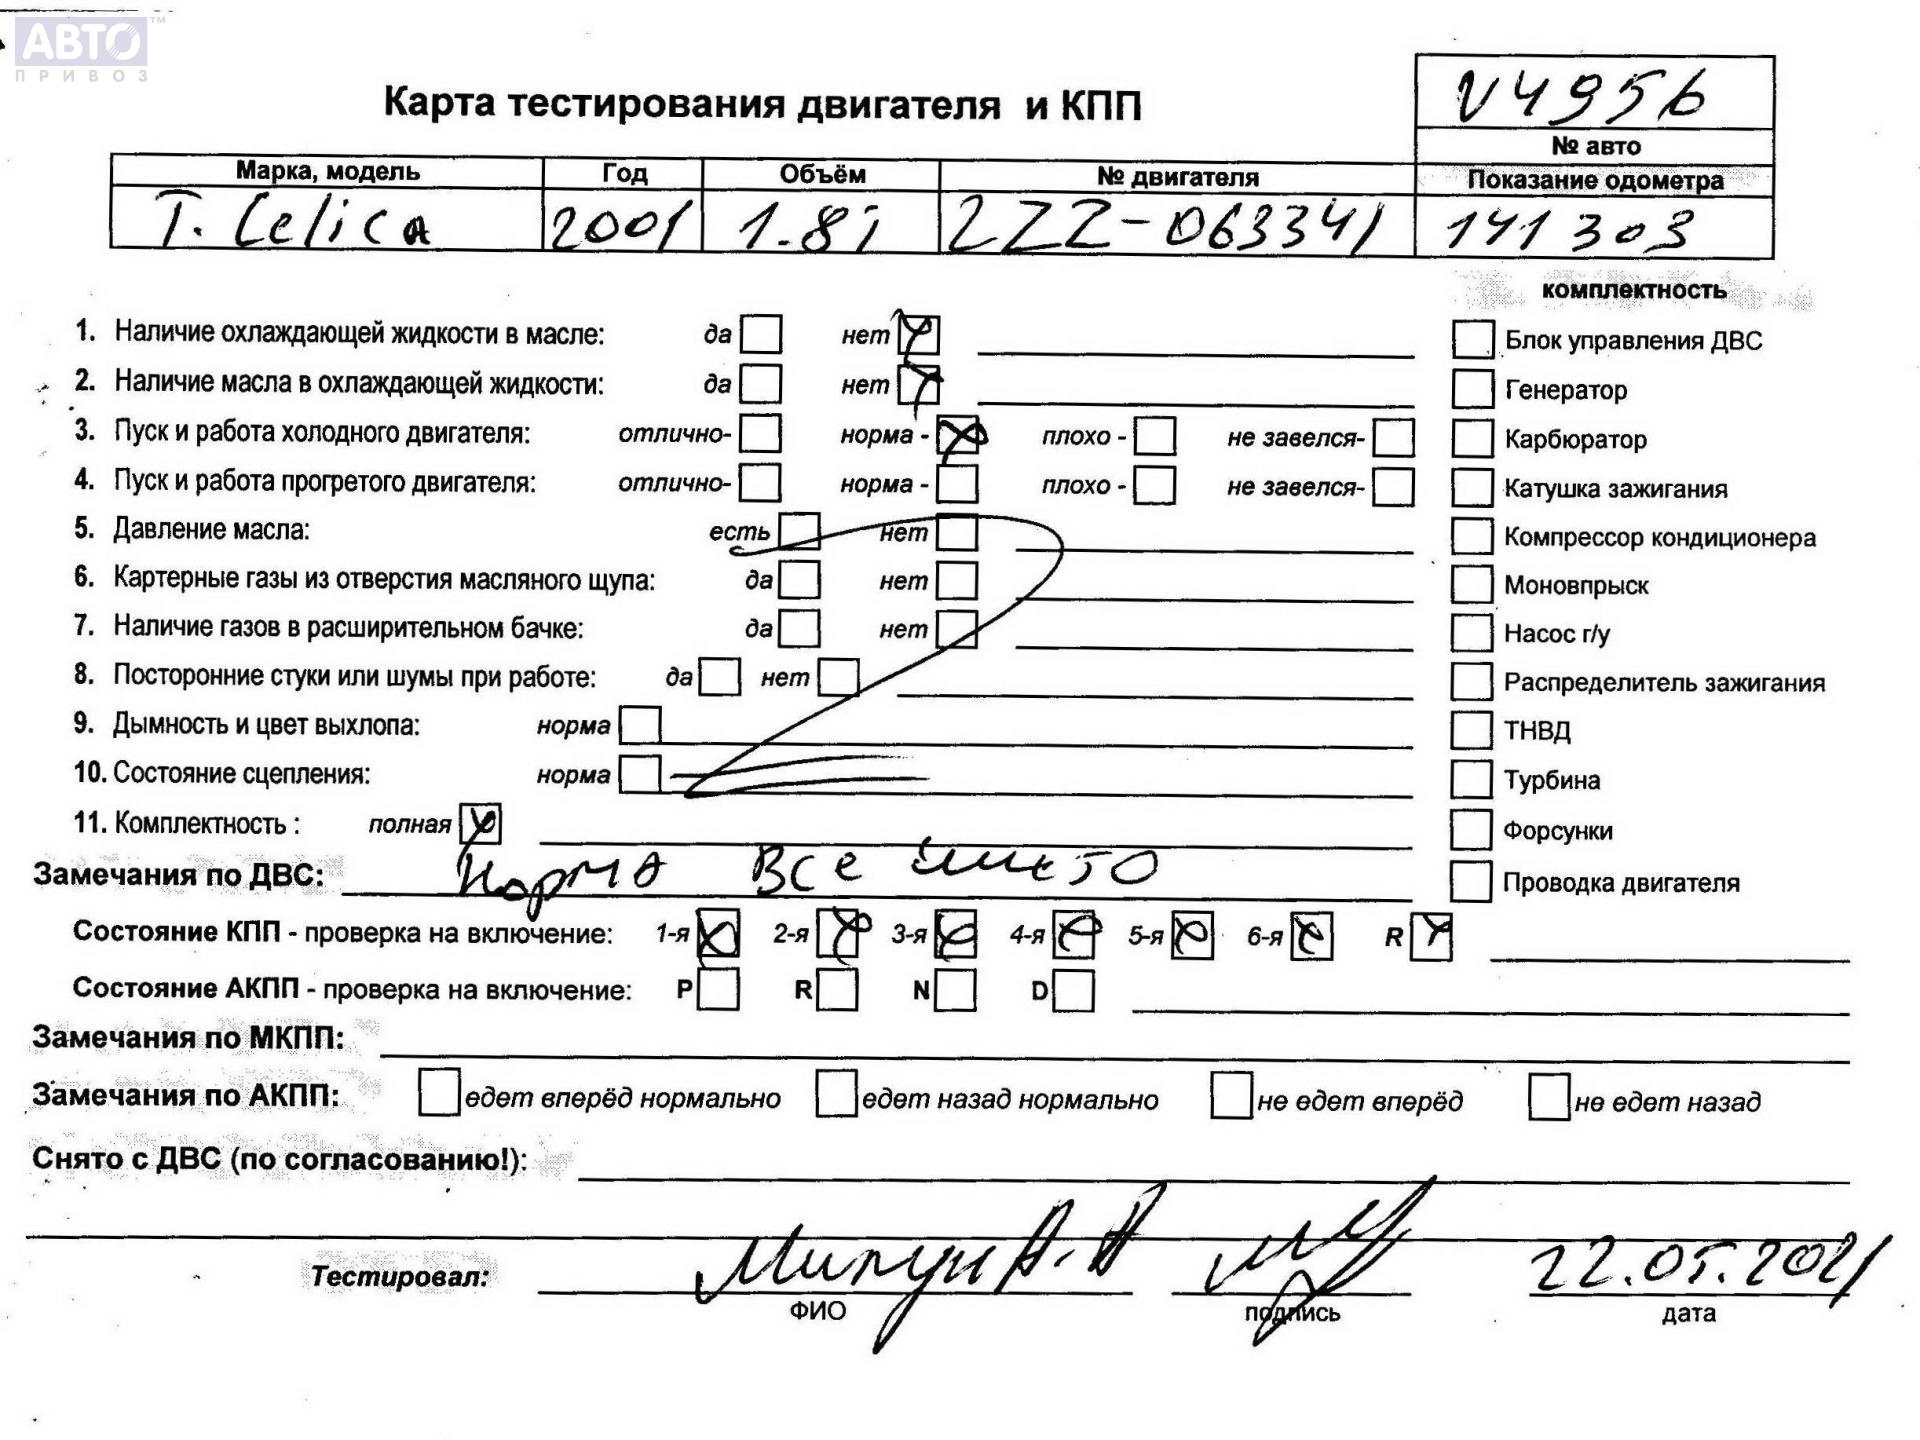 АВТО ™
ПРИВОЗ
V4956
Карта тестирования двигателя и КПП
№ авто
Марка, модель Год Объём № двигателя Показание одометра
T. Celica 2001 1.8i 2ZZ-063341 141303
комплектность
1. Наличие охлаждающей жидкости в масле: да нет Блок управления ДВС
2. Наличие масла в охлаждающей жидкости: да нет Генератор
3. Пуск и работа холодного двигателя: отлично- норма - плохо - не завелся- Карбюратор
4. Пуск и работа прогретого двигателя: отлично- норма - плохо - не завелся- Катушка зажигания
5. Давление масла: есть нет Компрессор кондиционера
6. Картерные газы из отверстия масляного щупа: да нет Моновпрыск
7. Наличие газов в расширительном бачке: да нет Насос г/у
8. Посторонние стуки или шумы при работе: да нет Распределитель зажигания
9. Дымность и цвет выхлопа: норма ТНВД
10. Состояние сцепления: норма Турбина
11. Комплектность : полная Форсунки
Замечания по ДВС: Норма все Проводка двигателя
Состояние КПП - проверка на включение: 1-я 2-я 3-я 4-я 5-я 6-я R
Состояние АКПП - проверка на включение: P R N D
Замечания по МКПП:
Замечания по АКПП: едет вперёд нормально едет назад нормально не едет вперёд не едет назад
Снято с ДВС (по согласованию!):
Тестировал: 22.05.2021
ФИО подпись дата